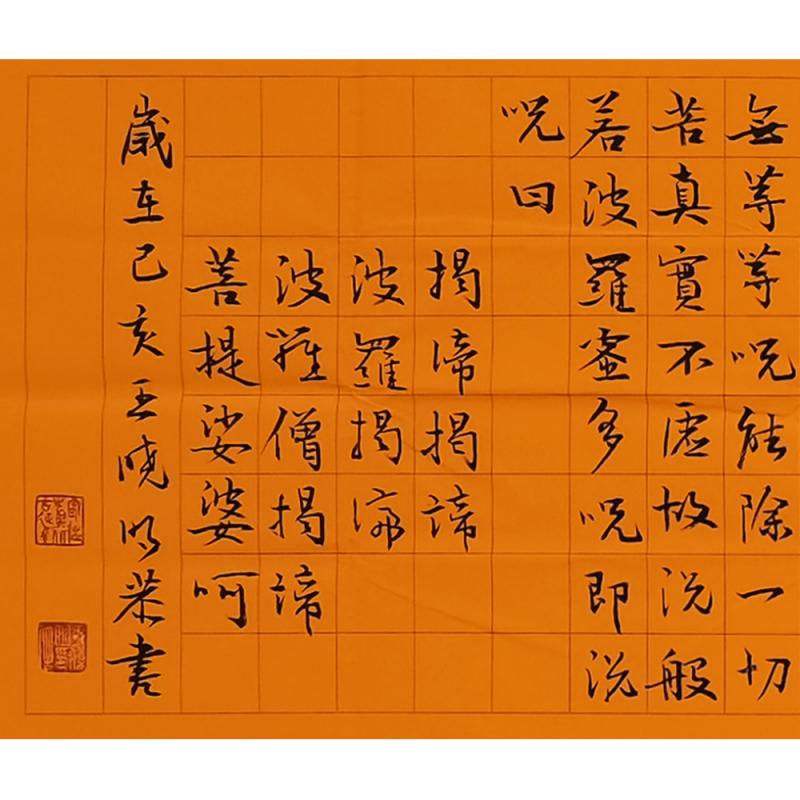 無等等呪能除一切
苦真實不虚故说般
若波羅蜜多呪即说
呪曰
揭諦揭諦
波羅揭諦
波羅僧揭諦
菩提娑婆呵
歲在己亥王曉明恭書